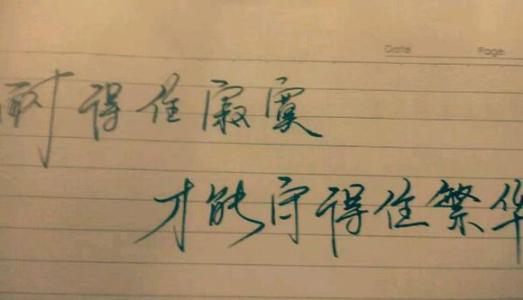 Date Page
耐得住寂寞
才能守得住繁华